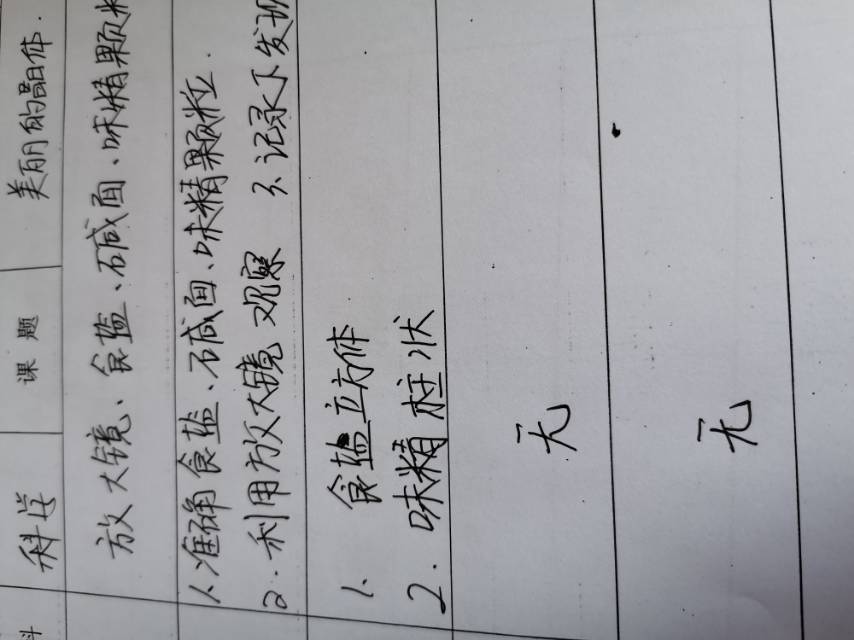 科 科学 课题 美丽的晶体.
放大镜、食盐、碱面、味精颗粒
1、准确食盐、碱面、味精颗粒.
2.利用放大镜观察 3、记录下发现
1、食盐立方体
2.味精柱状
无
无